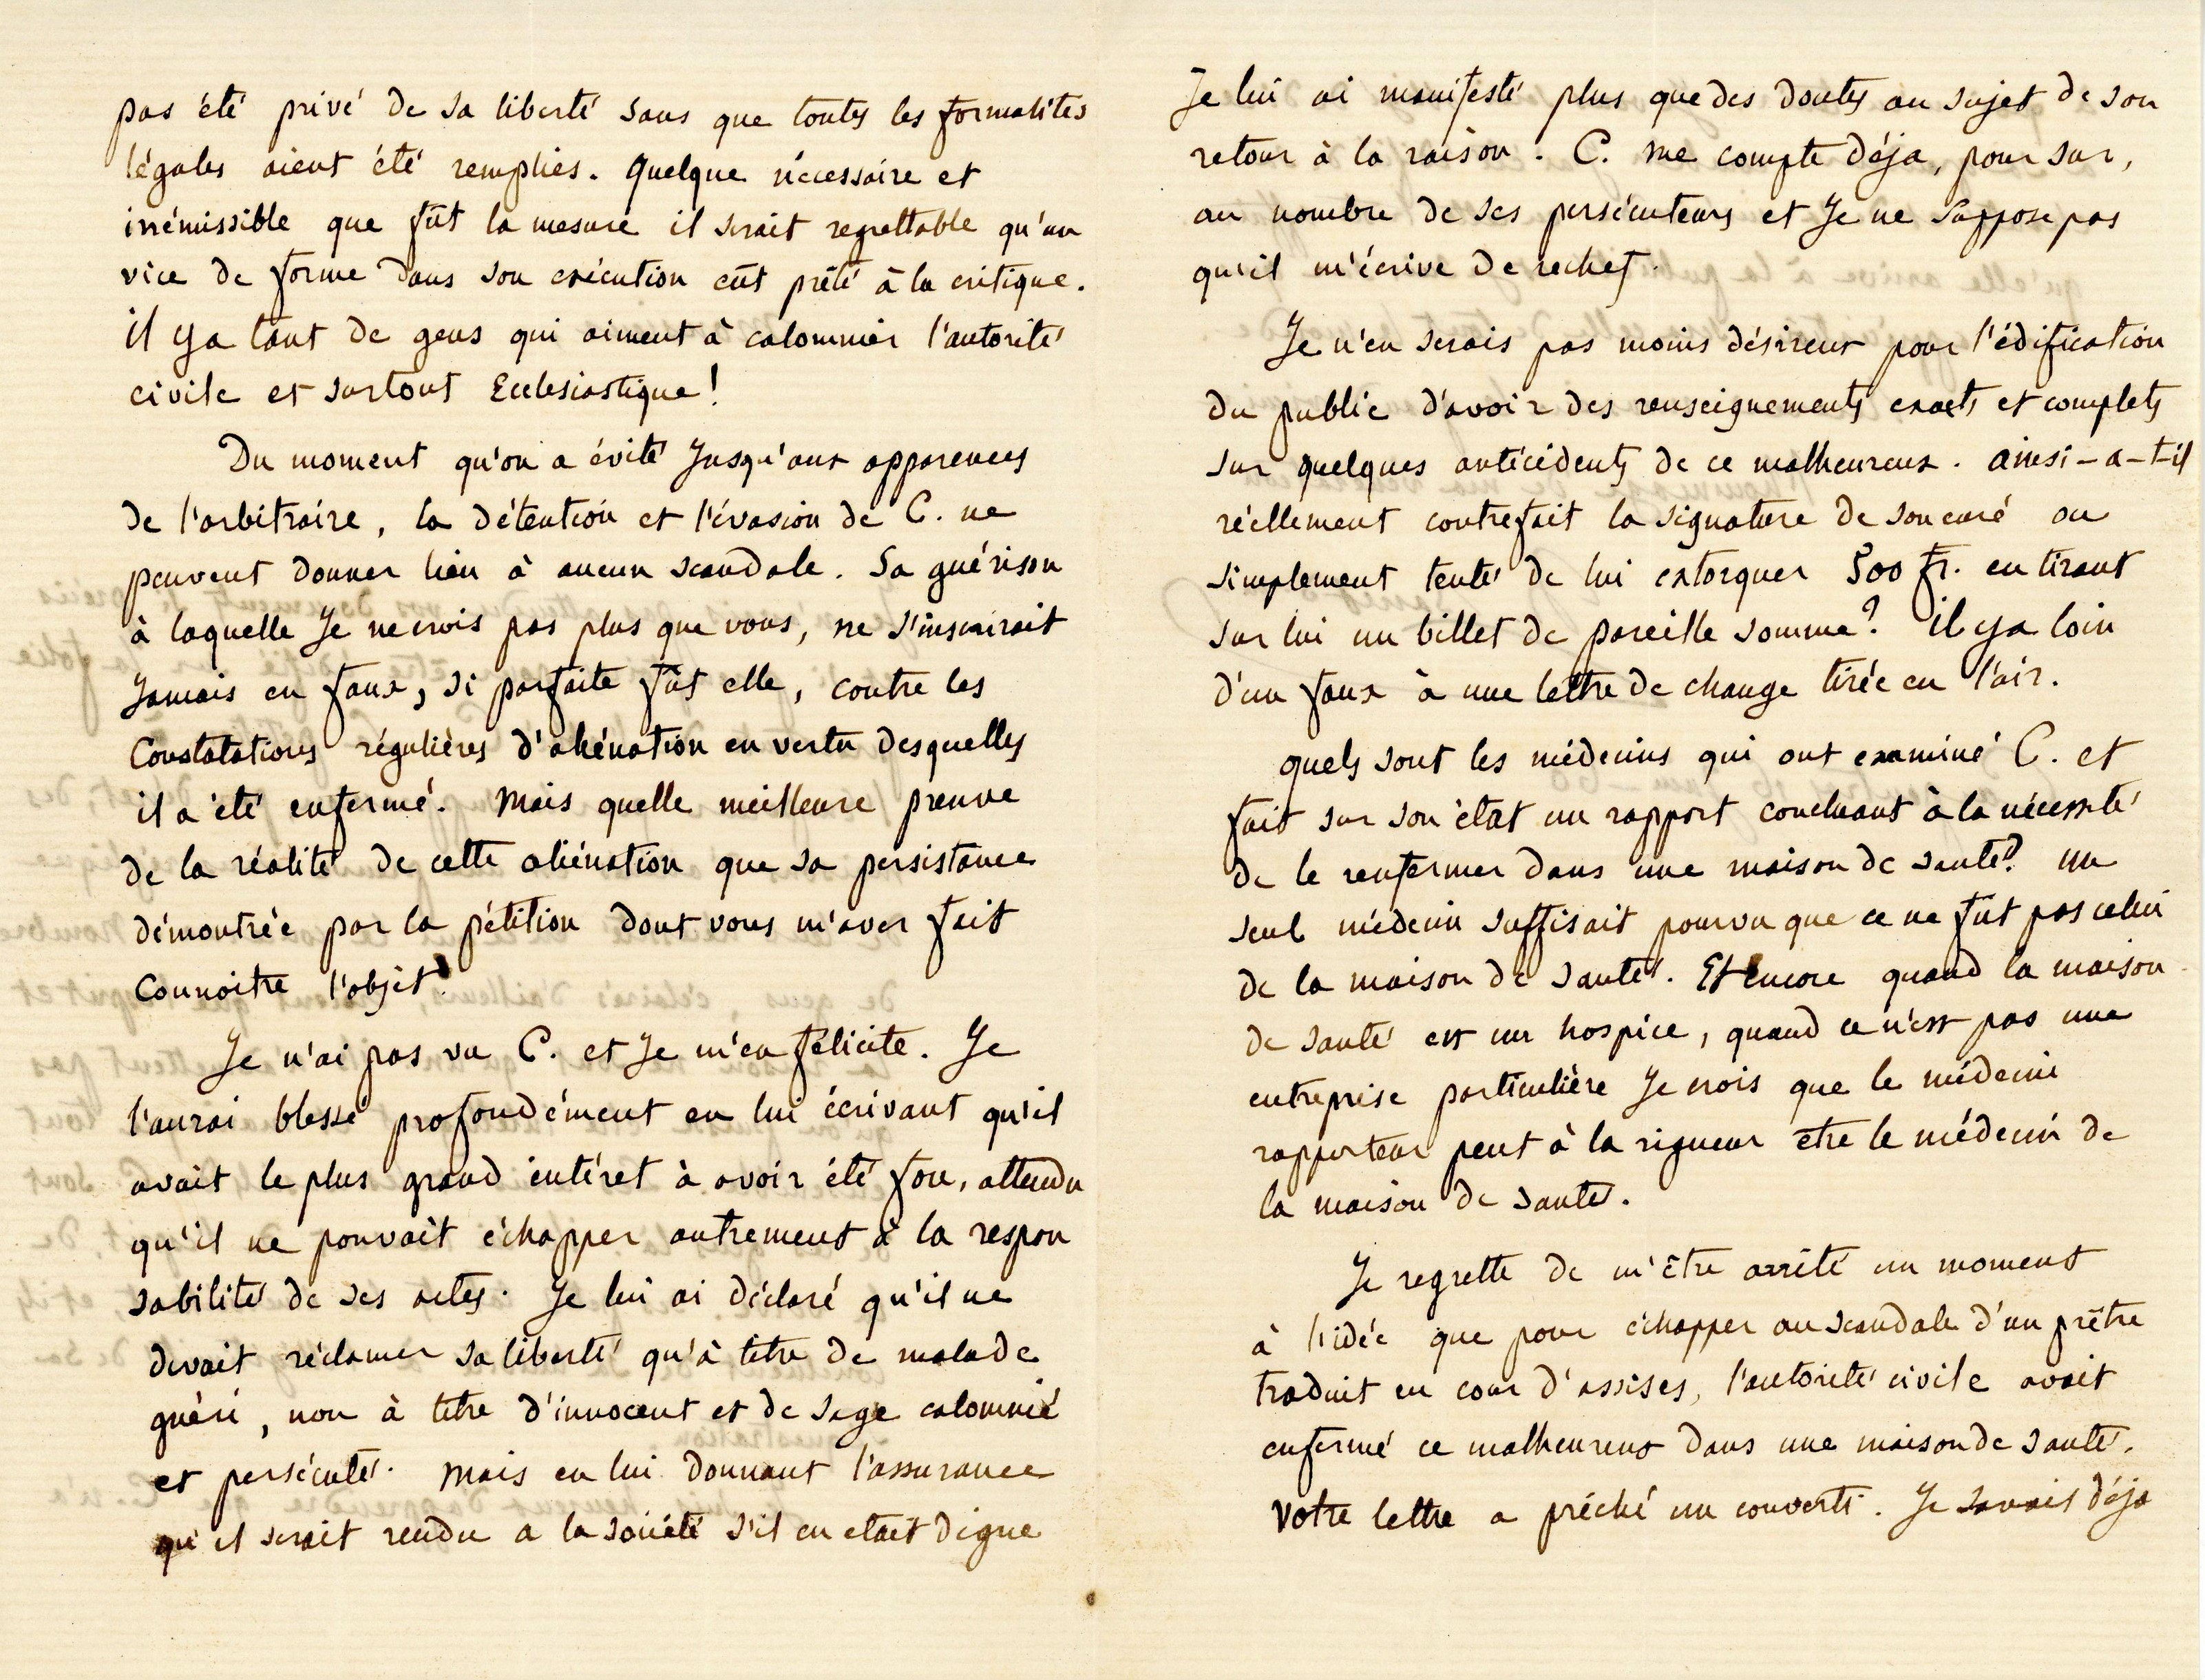 pas été privé de sa liberté sans que toutes les formalités
légales aient été remplies. Quelque nécessaire et
irrémissible que fût la mesure il serait regrettable qu'un
vice de forme dans son exécution eût prêté à la critique.
Il y a tant de gens qui aiment à calomnier l'autorité
civile et surtout Ecclesiastique !
Du moment qu'on a évité jusqu'aux apparences
de l'arbitraire, la détention et l'évasion de C. ne
peuvent donner lieu à aucun scandale. Sa guérison
à laquelle je ne crois pas plus que vous, ne s'inscrirait
jamais en faux, si parfaite fût elle, contre les
Constatations régulières d'aliénation en vertu desquelles
il a été enfermé. Mais quelle meilleure preuve
de la réalité de cette aliénation que sa persistance
démontrée par la pétition dont vous m'avez fait
Connoitre l'objet ?
Je n'ai pas vu C. et je m'en félicite. Je
l'aurai blessé profondément en lui écrivant qu'il
avait le plus grand intéret à avoir été fou, attendu
qu'il ne pouvait échapper autrement à la respon
sabilité de ses actes. Je lui ai déclaré qu'il ne
devait réclamer sa liberté qu'à titre de malade
guéri, non à titre d'innocent et de sage calomnié
et persécuté. Mais en lui donnant l'assurance
qu'il serait rendu a la société s'il en etait digne
Je lui ai manifesté plus que des doutes au sujet de son
retour à la raison. C. me compte déja, pour sur,
au nombre de ses persécuteurs et je ne suppose pas
qu'il m'écrive de rechef.
Je n'en serais pas moins désireux pour l'édification
du public d'avoir des renseignements exacts et complets
sur quelques antécédents de ce malheureux. Ainsi-a-t-il
réellement contrefait la signature de son curé ou
simplement tenté de lui extorquer 500 fr. en tirant
sur lui un billet de pareille somme ? Il y a loin
d'un faux à une lettre de change tirée en l'air.
quels sont les médecins qui ont examiné C. et
fait sur son état un rapport concluant à la nécessité
de le renfermer dans une maison de santé ? un
seul médecin suffisait pourvu que ce ne fut pas celui
de la maison de santé. Et encore quand la maison
de santé est un hospice, quand ce n'est pas une
entreprise particulière je crois que le médecin
rapporteur peut à la rigueur etre le médecin de
la maison de santé.
Je regrette de m'être arrêté un moment
à l'idée que pour échapper au scandale d'un prêtre
traduit en cour d'assises, l'autorité civile avait
enfermé ce malheureux dans une maison de santé.
Votre lettre a prêché un converti. Je savais déja